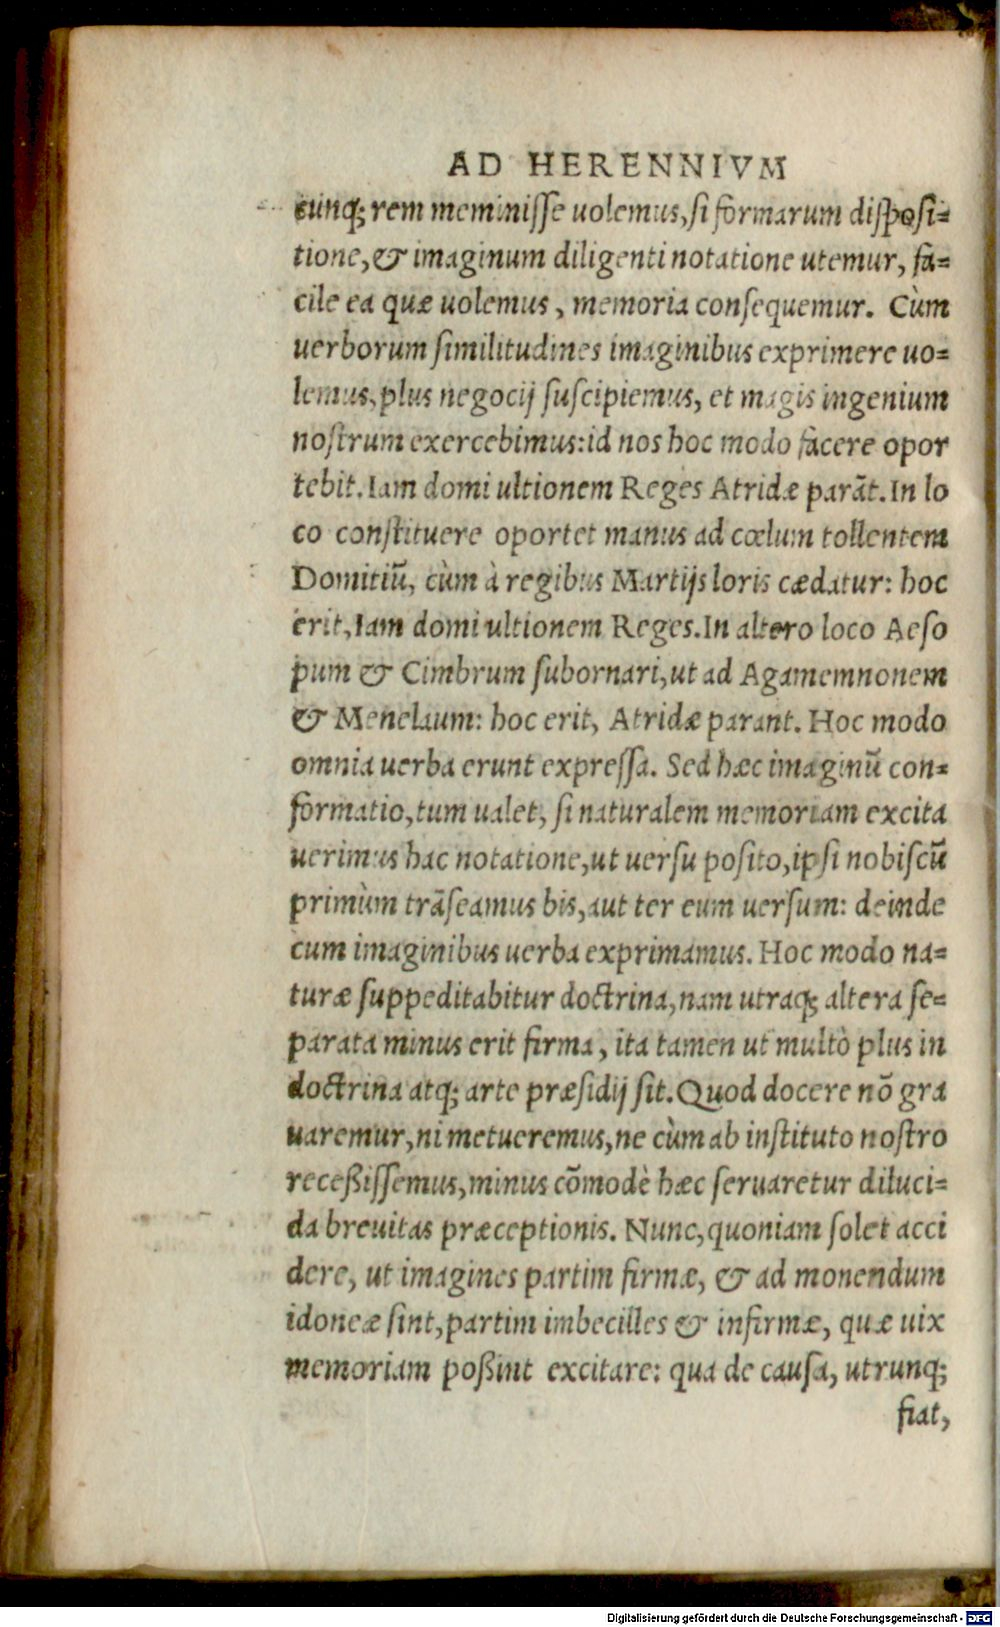 AD HERENNIVM
cunq; rem meminisse uolemus, si formarum disposi=
tione, & imaginum diligenti notatione utemur, fa=
cile ea quæ uolemus, memoria consequemur. Cùm
uerborum similitudines imaginibus exprimere uo=
lemus, plus negocij suscipiemus, et magis ingenium
nostrum exercebimus: id nos hoc modo facere opor
tebit. Iam domi ultionem Reges Atridæ parāt. In lo
co constituere oportet manus ad cœlum tollentem
Domitiū, cùm à regibus Martijs loris cædatur: hoc
erit, Iam domi ultionem Reges. In altero loco Aeso
pum & Cimbrum subornari, ut ad Agamemnonem
& Menelaum: hoc erit, Atridæ parant. Hoc modo
omnia uerba erunt expressa. Sed hæc imaginū con=
formatio, tum ualet, si naturalem memoriam excita
uerimus hac notatione, ut uersu posito, ipsi nobiscū
primùm trāseamus bis, aut ter eum uersum: deinde
cum imaginibus uerba exprimamus. Hoc modo na=
turæ suppeditabitur doctrina, nam utraq; altera se=
parata minus erit firma, ita tamen ut multò plus in
doctrina atq; arte præsidij sit. Quod docere nō gra
uaremur, ni metueremus, ne cùm ab instituto nostro
receßissemus, minus cōmodè hæc seruaretur diluci=
da breuitas præceptionis. Nunc, quoniam solet acci
dere, ut imagines partim firmæ, & ad monendum
idoneæ sint, partim imbecilles & infirmæ, quæ uix
memoriam poßint excitare: qua de causa, utrunq;
fiat,
Digitalisierung gefördert durch die Deutsche Forschungsgemeinschaft - DFG